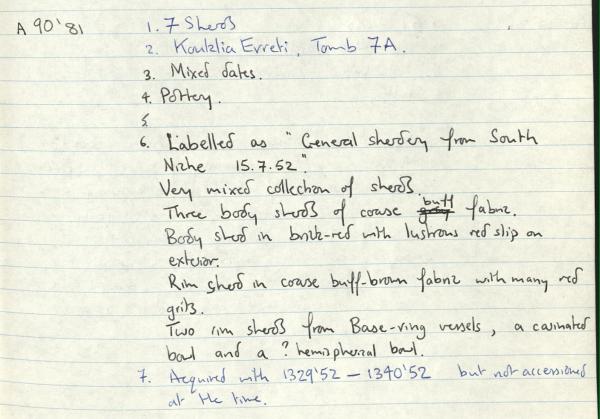 A 90'81
1. 7 Sherds
2. Kouklia Evreti, Tomb 7A.
3. Mixed dates.
4. Pottery.
5
6. Labelled as "General sherdery from South
Niche 15.7.52".
Very mixed collection of sherds.
Three body sherds of coarse buff fabric.
Body sherd in brick-red with lustrous red slip on
exterior.
Rim sherd in coarse buff-brown fabric with many red
grits.
Two rim sherds from Base-ring vessels, a carinated
bowl and a ? hemispherical bowl.
7. Acquired with 1329'52 – 1340'52 but not accessioned
at the time.